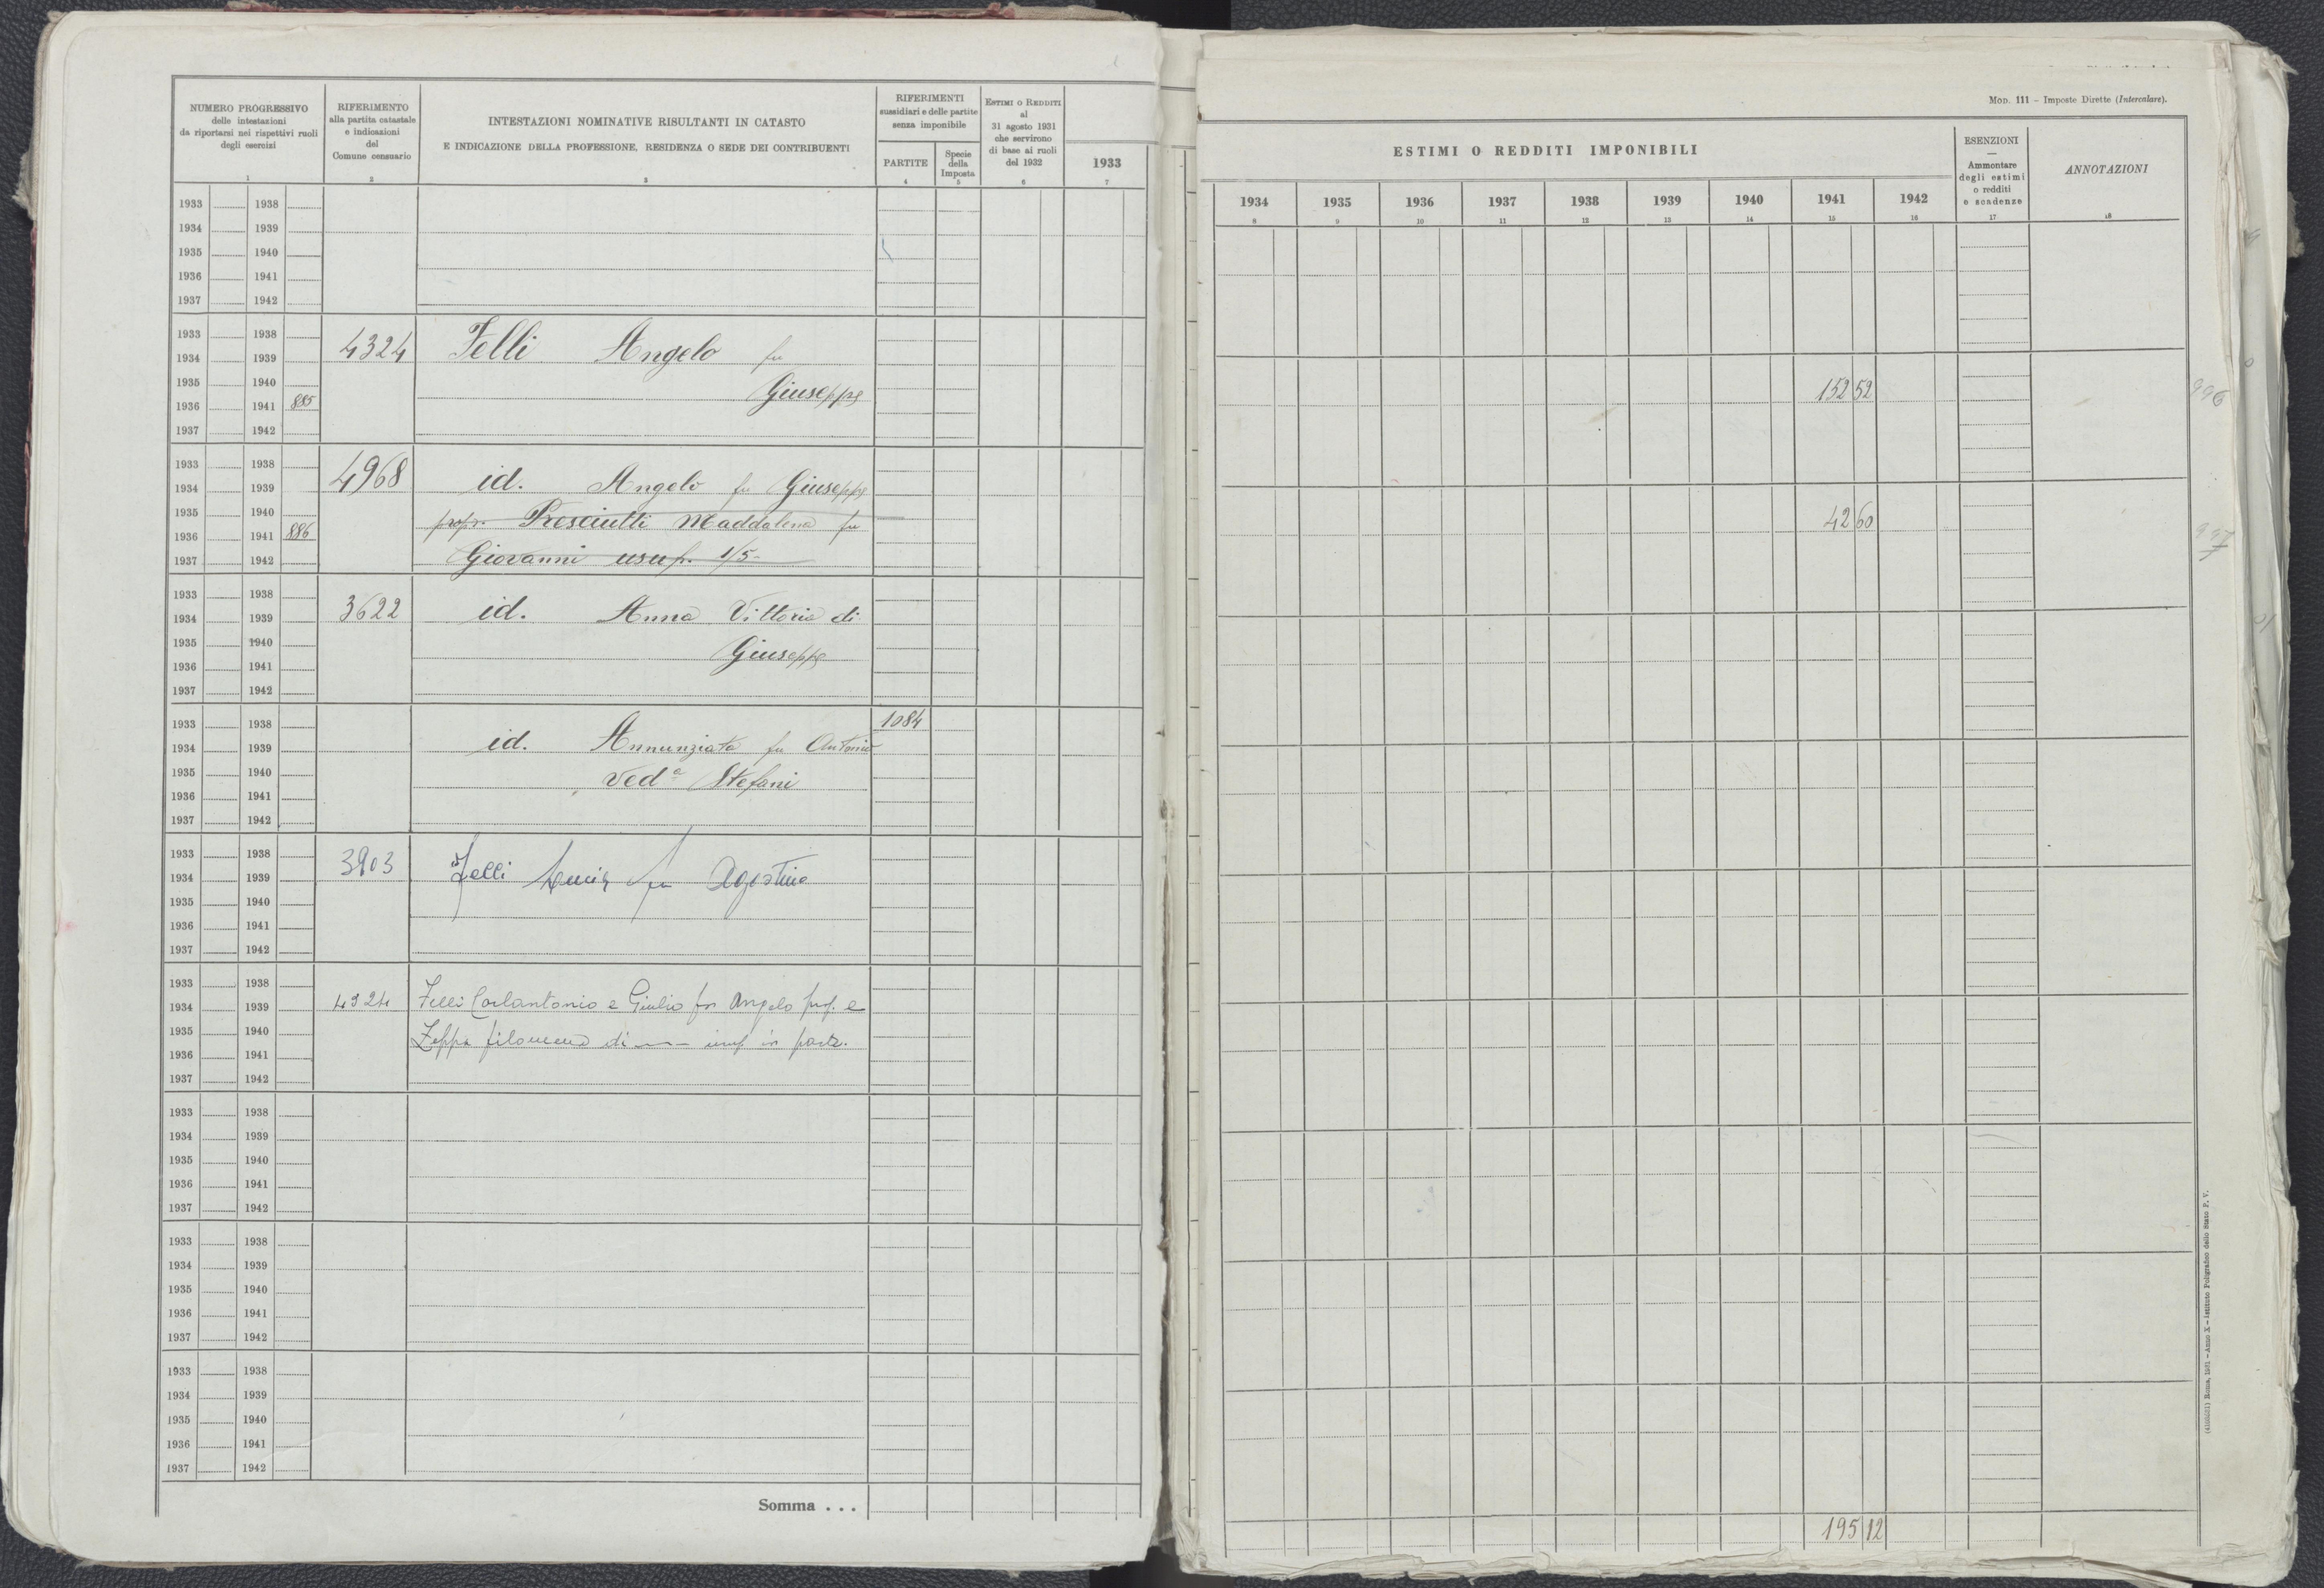 NUMERO PROGRESSIVO
delle intestazioni
da riportarsi nei rispettivi ruoli
degli esercizi
1
RIFERIMENTO
alla partita catastale
e indicazioni
del
Comune censuario
2
INTESTAZIONI NOMINATIVE RISULTANTI IN CATASTO
E INDICAZIONE DELLA PROFESSIONE, RESIDENZA O SEDE DEI CONTRIBUENTI
3
RIFERIMENTI
sussidiari e delle partite
senza imponibile
PARTITE
4
Specie
della
Imposta
5
ESTIMI O REDDITI
al
31 agosto 1931
che servirono
di base ai ruoli
del 1932
6
1933
7
1933 1938
1934 1939
1935 1940
1936 1941
1937 1942
1933 1938
1934 1939
1935 1940
1936 1941 885
1937 1942
4324
Felli Angelo fu
Giuseppe
1933 1938
1934 1939
1935 1940
1936 1941 886
1937 1942
4968
id. Angelo fu Giuseppe
propr. Presciutti Maddalena fu
Giovanni usuf. 1/5
1933 1938
1934 1939
1935 1940
1936 1941
1937 1942
3622
id. Anna Vittoria di
Giuseppe
1933 1938
1934 1939
1935 1940
1936 1941
1937 1942
id. Annunziata fu Antonio
Ved.a Stefani
1084
1933 1938
1934 1939
1935 1940
1936 1941
1937 1942
3903
Felli fu Agostino
1933 1938
1934 1939
1935 1940
1936 1941
1937 1942
4324
Felli Carlantonio e Giulio fu Angelo prop. e
Zeppa filomena di usuf in parte.
1933 1938
1934 1939
1935 1940
1936 1941
1937 1942
1933 1938
1934 1939
1935 1940
1936 1941
1937 1942
1933 1938
1934 1939
1935 1940
1936 1941
1937 1942
Somma . . .
MOD. 111 – Imposte Dirette (Intercalare).
ESTIMI O REDDITI IMPONIBILI
1934 1935 1936 1937 1938 1939 1940 1941 1942
8 9 10 11 12 13 14 15 16
ESENZIONI
—
Ammontare
degli estimi
o redditi
o scadenze
17
ANNOTAZIONI
18
152 52
996
42 60
195 12
Roma, 1931 – Anno X – Istituto Poligrafico dello Stato P. V.